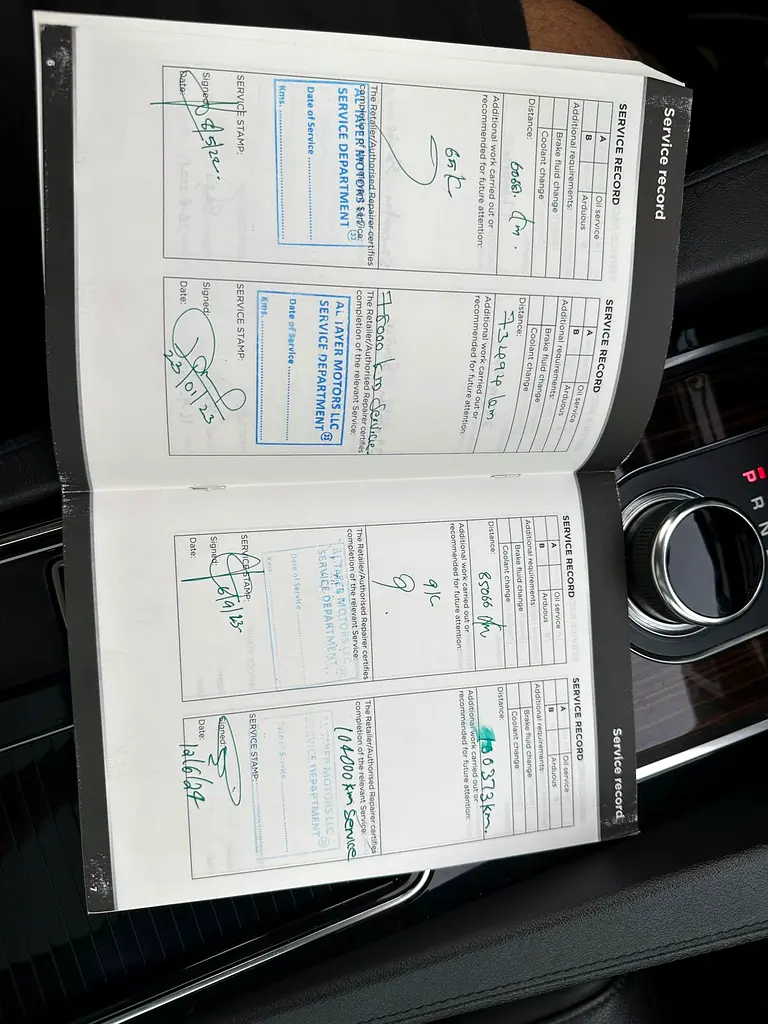 Service record
SERVICE RECORD
A
Oil service
B
Arduous
Additional requirements:
Brake fluid change
Coolant change
Distance:
Additional work carried out or
recommended for future attention:
65K
The Retailer/Authorised Repairer certifies
completion of the relevant Service:
AL TAYER MOTORS LLC
SERVICE DEPARTMENT
Date of Service
Kms.
SERVICE STAMP:
Signed:
Date:
6
SERVICE RECORD
A
Oil service
B
Arduous
Additional requirements:
Brake fluid change
Coolant change
Distance:
73494 km
Additional work carried out or
recommended for future attention:
78000 km service
The Retailer/Authorised Repairer certifies
completion of the relevant Service:
AL TAYER MOTORS LLC
SERVICE DEPARTMENT
Date of Service
Kms.
SERVICE STAMP:
Signed:
Date:
23/01/23
Service record
SERVICE RECORD
A
Oil service
B
Arduous
Additional requirements:
Brake fluid change
Coolant change
Distance:
85066 km
Additional work carried out or
recommended for future attention:
91K
The Retailer/Authorised Repairer certifies
completion of the relevant Service:
AL TAYER MOTORS LLC
SERVICE DEPARTMENT
Date of Service
Kms
SERVICE STAMP:
Signed:
Date:
SERVICE RECORD
A
Oil service
B
Arduous
Additional requirements:
Brake fluid change
Coolant change
Distance:
100373 km.
Additional work carried out or
recommended for future attention:
The Retailer/Authorised Repairer certifies
completion of the relevant Service:
104000 km service
AL TAYER MOTORS LLC
SERVICE DEPARTMENT
Date of Service
SERVICE STAMP:
Signed:
Date:
12/6/24
7
P
R
N